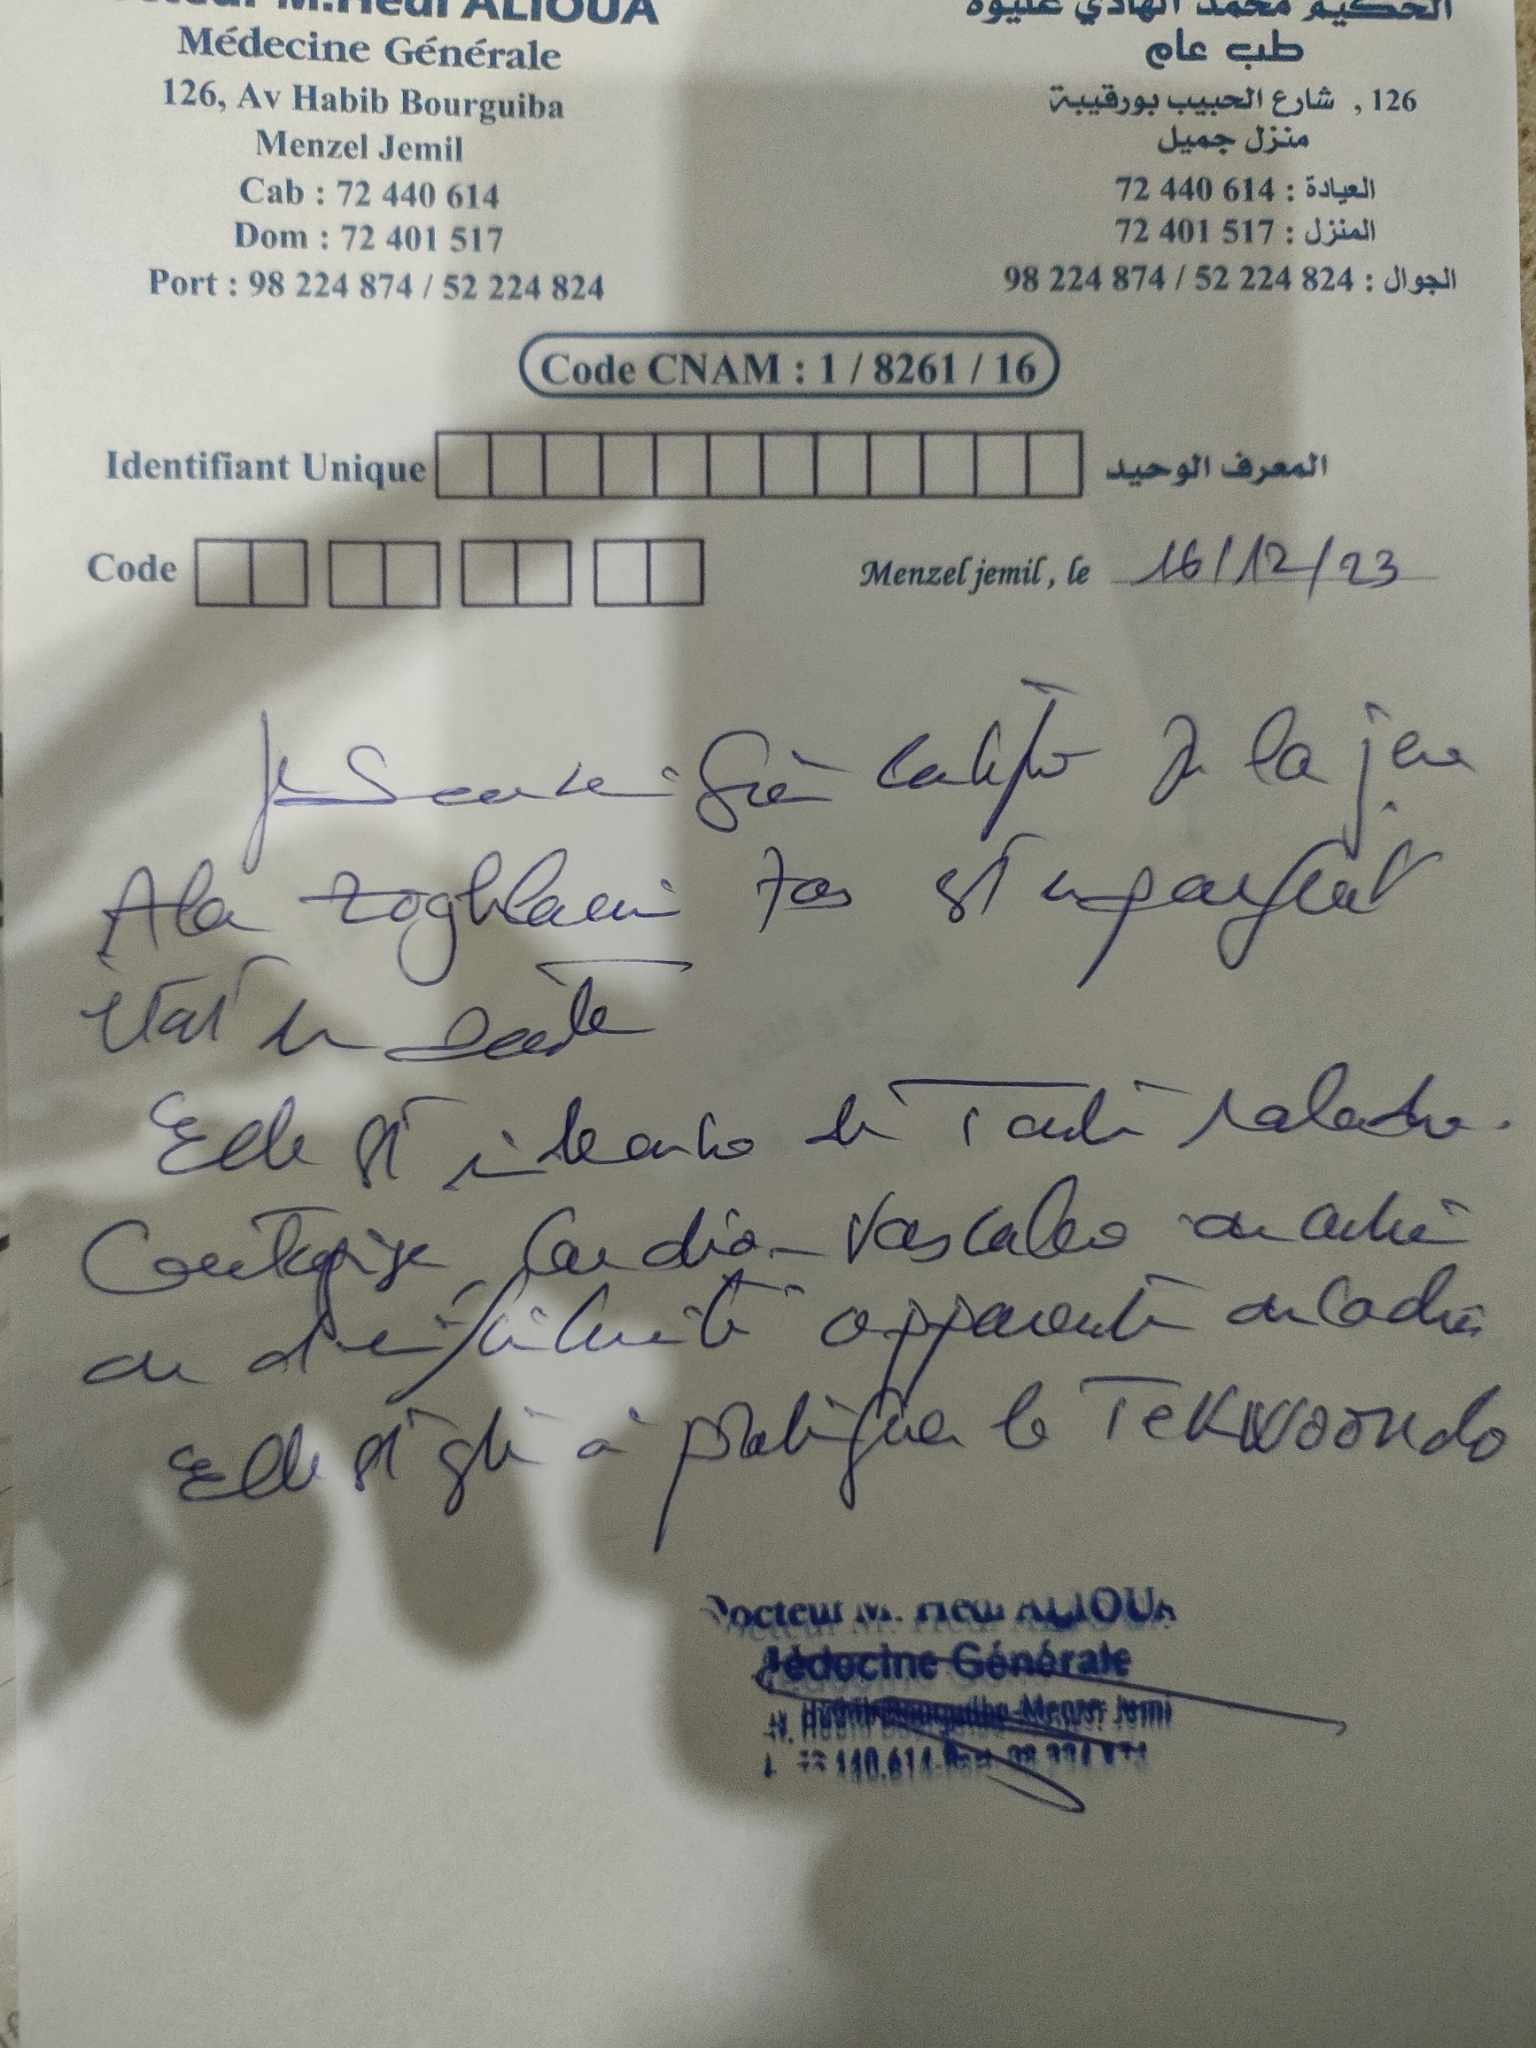 Docteur M.Hedi ALIOUA
Médecine Générale
126, Av Habib Bourguiba
Menzel Jemil
Cab : 72 440 614
Dom : 72 401 517
Port : 98 224 874 / 52 224 824
الحكيم محمد الهادي عليوة
طب عام
126 , شارع الحبيب بورقيبة
منزل جميل
العيادة : 72 440 614
المنزل : 72 401 517
الجوال : 98 224 874 / 52 224 824
Code CNAM : 1 / 8261 / 16
Identifiant Unique المعرف الوحيد
Code
Menzel jemil , le 16/12/23
Je certifie la jeune
Ala Zoghlami 7 ans est en parfait
état de santé
Elle est de toute maladie
Contagieuse Cardio-Vasculaire
ou d'infirmité apparente
Elle est à pratiquer le Tekwoondo
Docteur M. Hedi ALIOUA
Médecine Générale
Av. Habib Bourguiba-Menzel Jemil